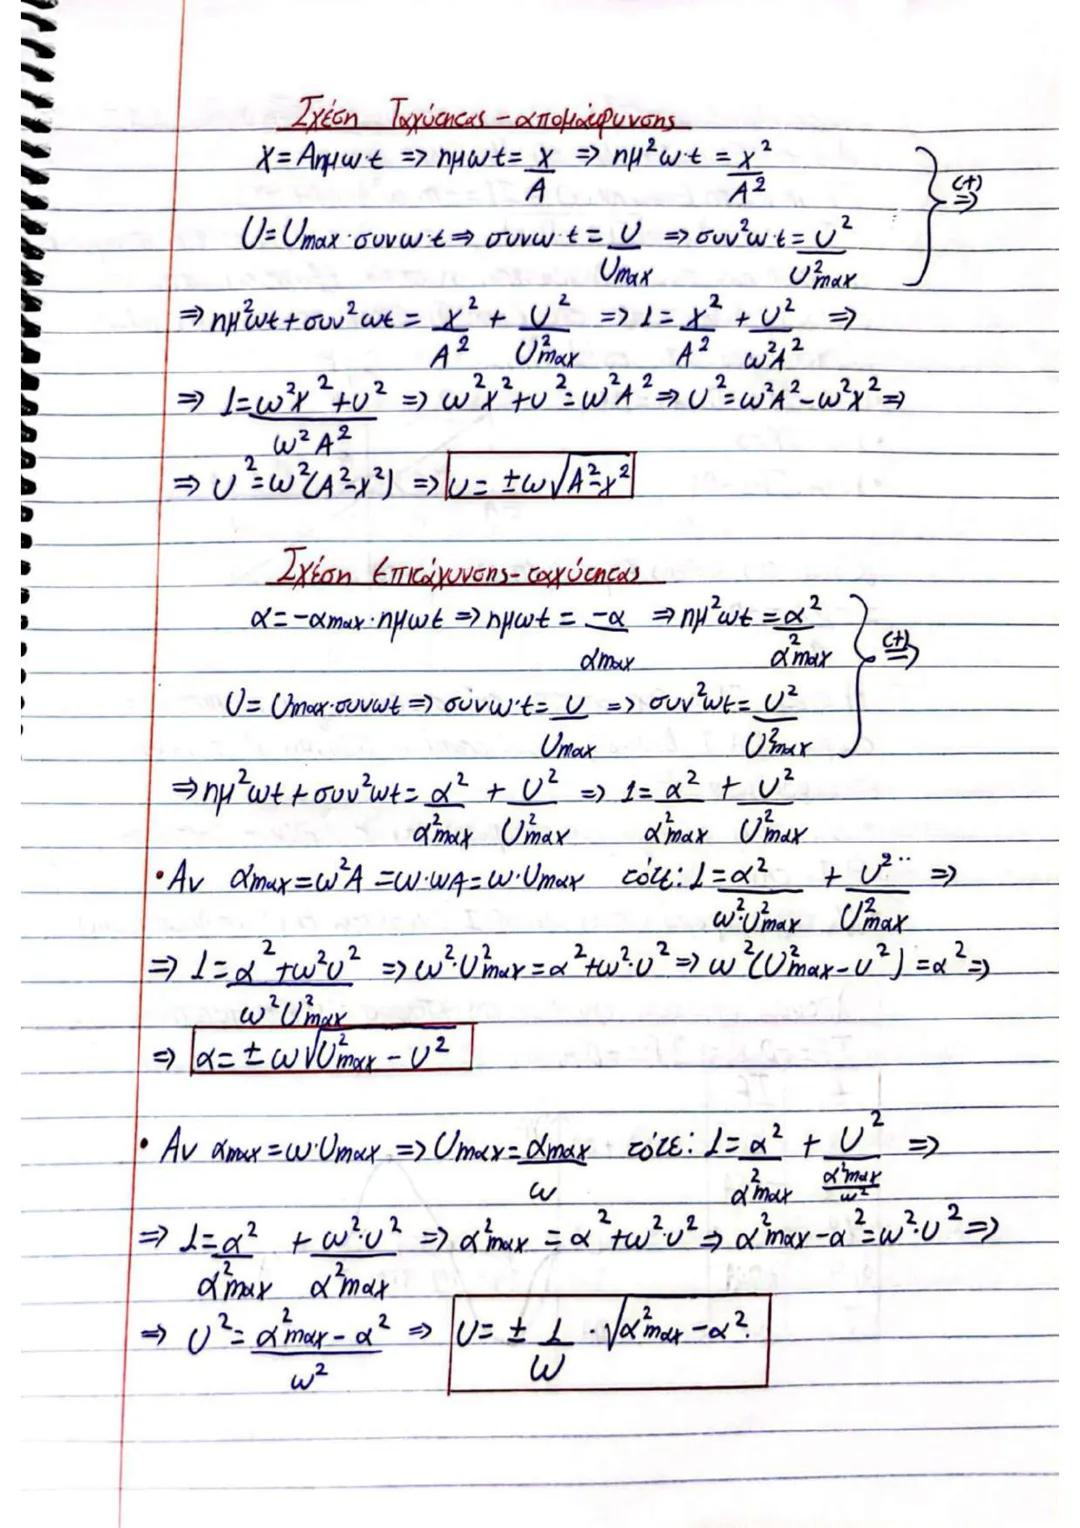 Σχέση Ταχύτητας - απομάκρυνσης
x = Αημω·t => ημωt = x/A => ημ²ω·t = x²/A² (+) =>
U = Umax·συνω·t => συνω·t = U/Umax => συν²ω·t = U²/U²max
=> ημ²ωt + συν²ωt = x²/A² + U²/U²max => 1 = x²/A² + U²/ω²A² =>
=> 1 = ω²x² + U²/ω²A² => ω²x² + U² = ω²A² => U² = ω²A² - ω²x² =>
=> U² = ω²(A² - x²) => U = ±ω√A² - x²
Σχέση επιτάχυνσης - ταχύτητας
α = -αmax·ημωt => ημωt = -α/αmax => ημ²ωt = α²/α²max (+) =>
U = Umax·συνωt => συνω·t = U/Umax => συν²ωt = U²/U²max
=> ημ²ωt + συν²ωt = α²/α²max + U²/U²max => 1 = α²/α²max + U²/U²max
• Αν αmax = ω²A = ω·ωA = ω·Umax τότε: 1 = α²/ω²·U²max + U²/U²max =>
=> 1 = α² + ω²U²/ω²U²max => ω²·U²max = α² + ω²·U² => ω²(U²max - U²) = α² =>
=> α = ± ω√U²max - U²
• Αν αmax = ω·Umax => Umax = αmax/ω τότε: 1 = α²/α²max + U²/α²max/ω² =>
=> 1 = α²/α²max + ω²·U²/α²max => α²max = α² + ω²·U² => α²max - α² = ω²·U² =>
=> U² = α²max - α²/ω² => U = ± 1/ω · √α²max - α².